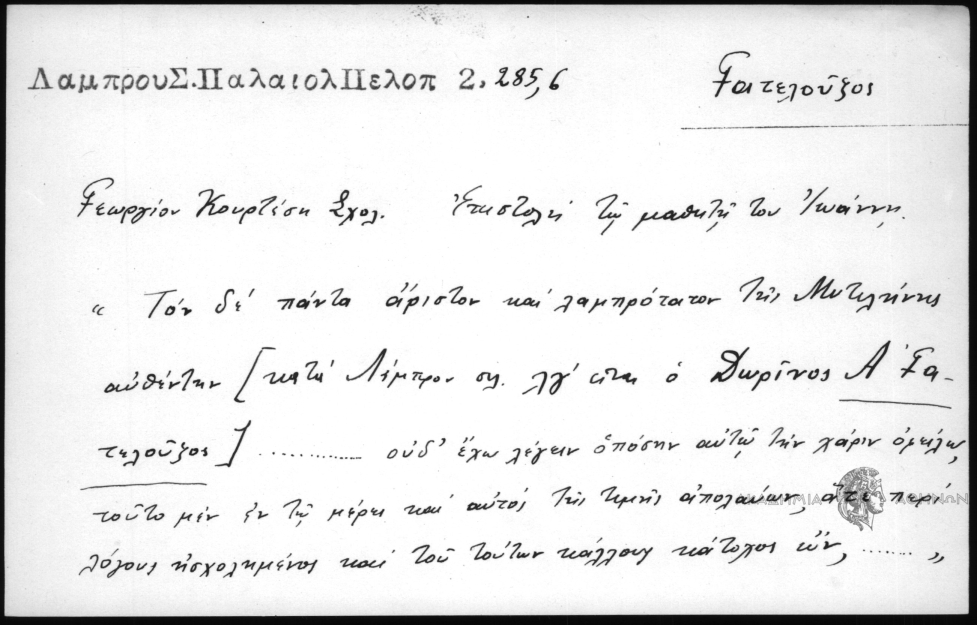 ΛαμπρουΣ.ΠαλαιολΠελοπ 2. 285,6 Γατελοῦζος
Γεωργίου Κουρτέση Σχολ. Ἐπιστολή τῷ μαθητῇ του Ἰωάννῃ.
“ Τόν δέ πάντα ἄριστον καί λαμπρότατον τῆς Μυτιλήνης
αὐθέντην [κατά Λάμπρον σελ. λγ' εἶναι ὁ Δωρῖνος Α' Γα-
τελοῦζος] ............... οὐδ' ἔχω λέγειν ὁπόσην αὐτῷ τήν χάριν ὀφείλω,
τοῦτο μέν ἐν τῷ μέρει καί αὐτός τῆς τιμῆς ἀπολαύων, ἅτε περί
λόγους ἠσχολημένος καί τοῦ τούτων κάλλους κάτοχος ὤν, ........ „
ΑΚΑΔΗΜΙΑ ΑΘΗΝΩΝ